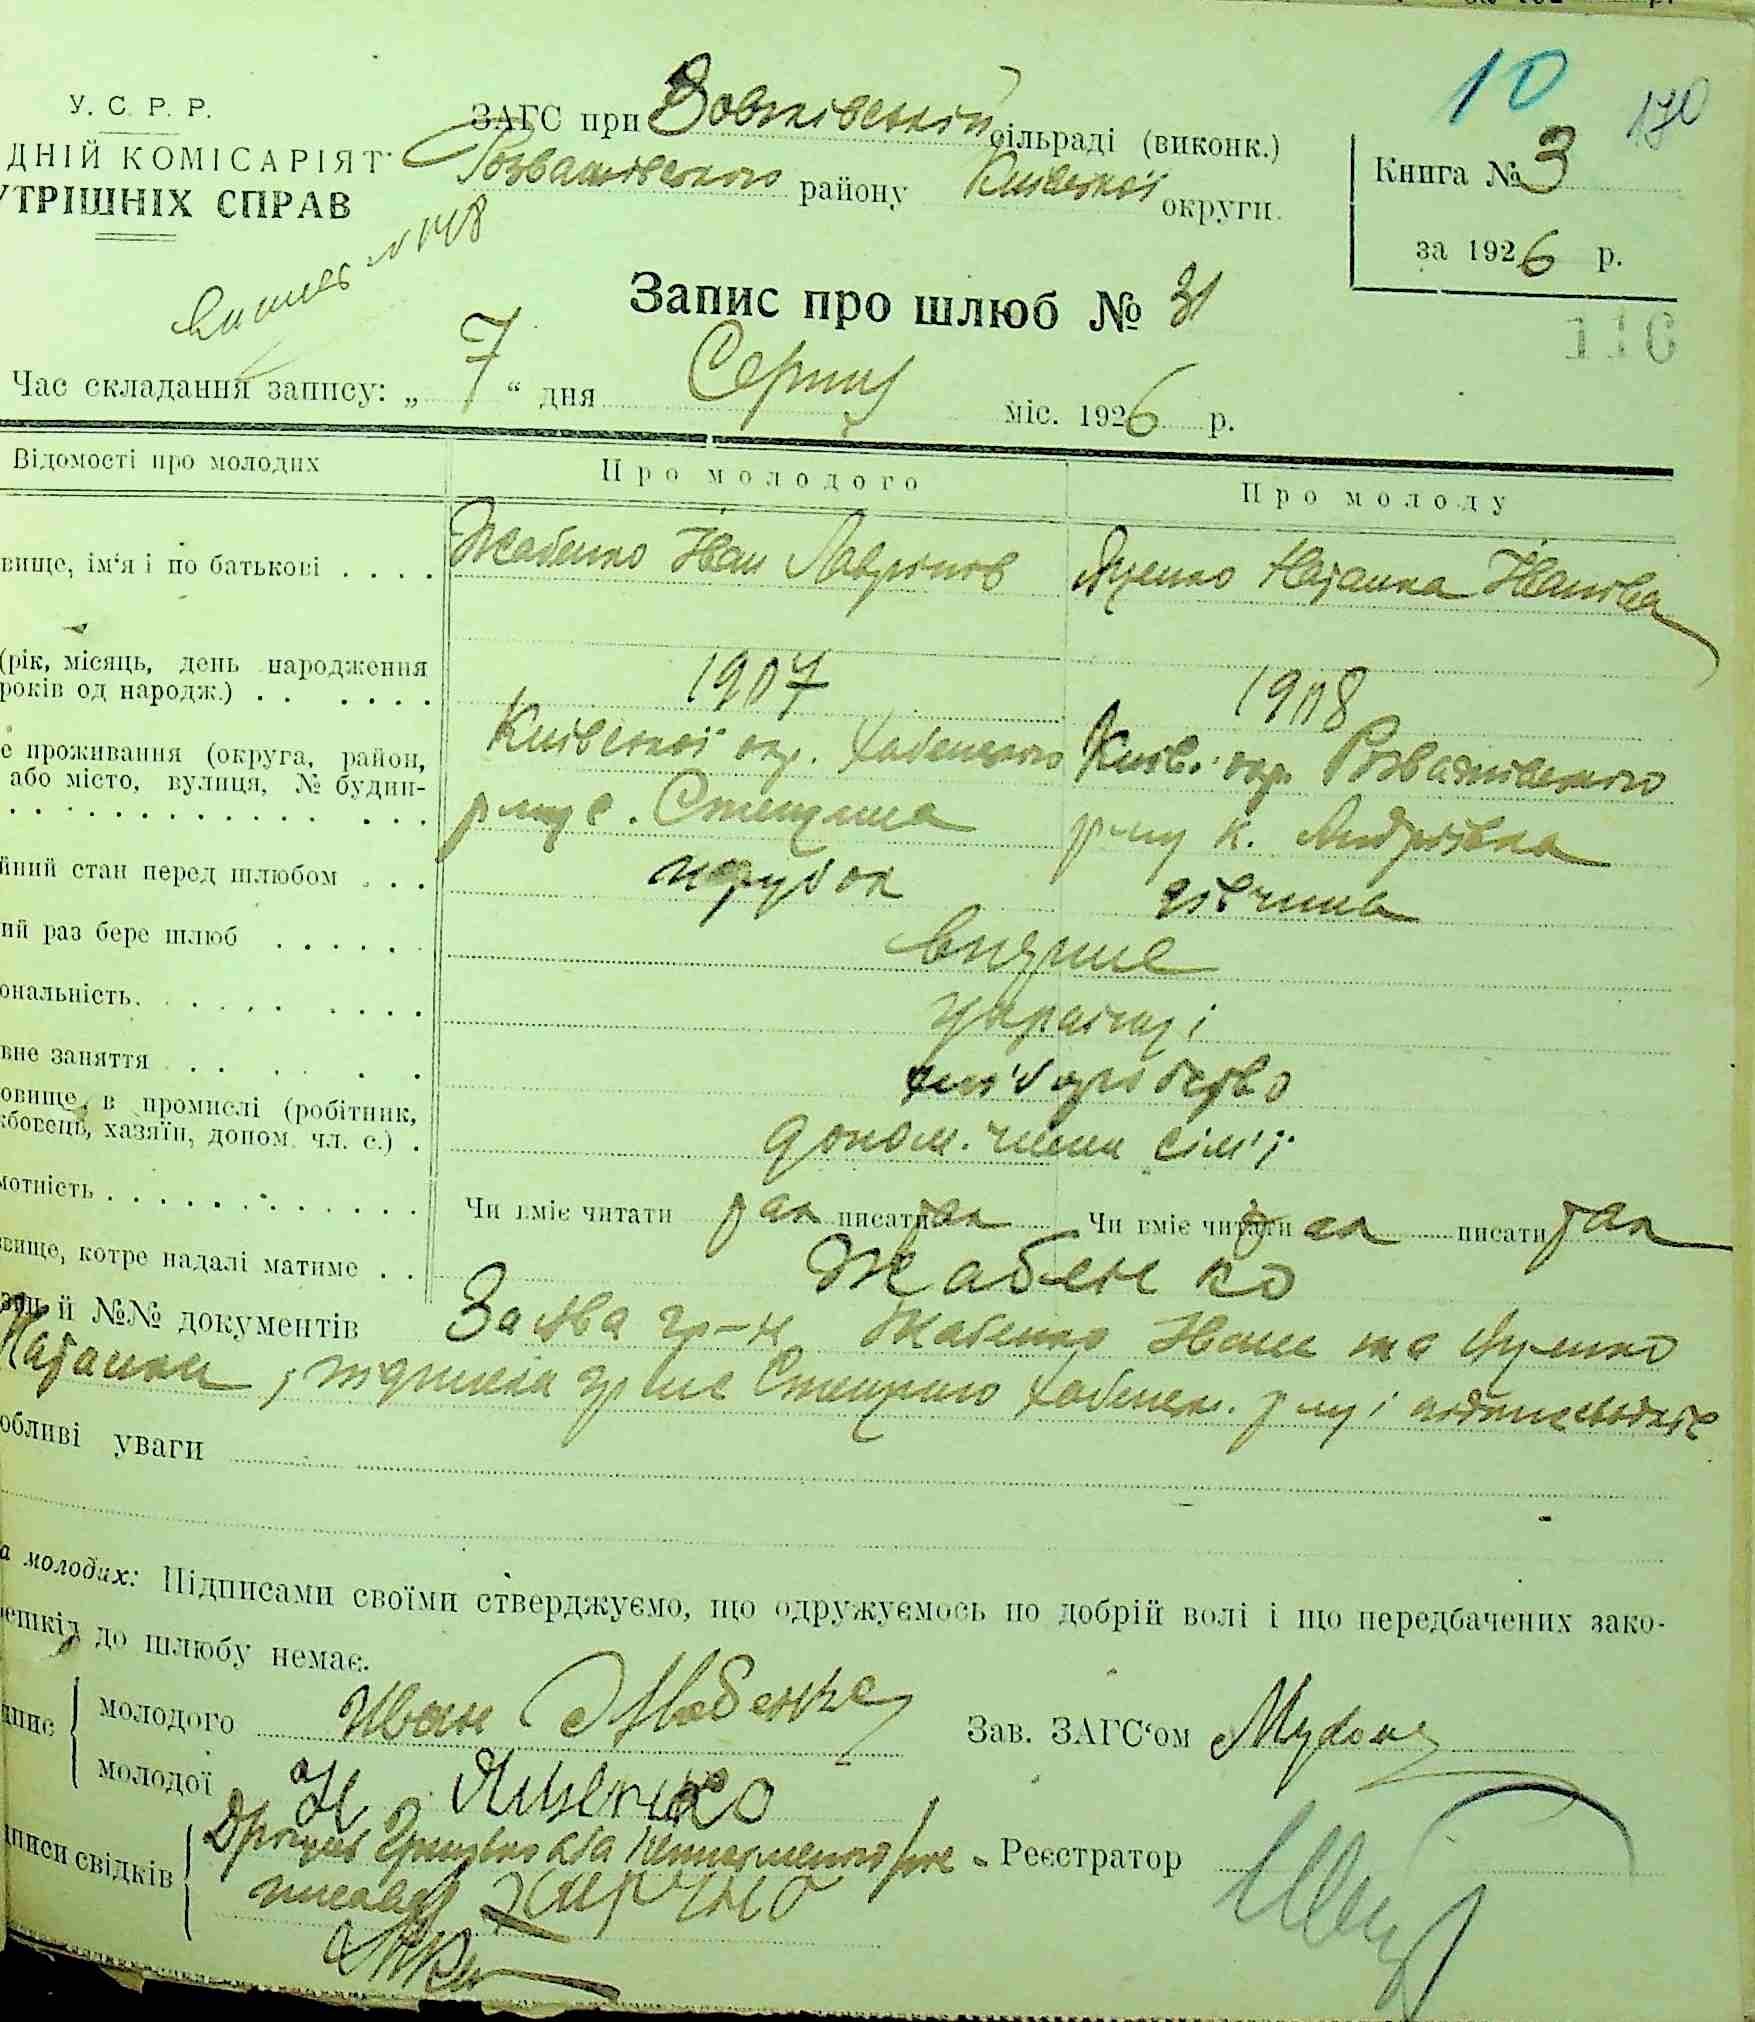 10 170
У. С. Р. Р.
ДНІЙ КОМІСАРІЯТ
УТРІШНІХ СПРАВ
ЗАГС при Вовчківській сільраді (виконк.)
Розважівського району Київської округи.
Книга № 3
за 1926 р.
№ 148
Запис про шлюб № 31
116
Час складання запису: „ 7 “ дня Серпня міс. 1926 р.
Відомості про молодих Про молодого Про молоду
вище, ім‘я і по батькові . . . . Жабенко Іван Лавринов Яценко Наталка Іванова
(рік, місяць, день народження
років од народж.) . . . . . . 1907 1908
е проживання (округа, район, Київської окр. Хабенського Київ. окр. Розважівського
або місто, вулиця, № будин-
р-ну с. Стещина р-ну к. Андріївка
йний стан перед шлюбом . . . парубок дівчина
ий раз бере шлюб . . . . . . вперше
ональність. . . . . . . . . . українці
вне заняття . . . . . . хліборобство
овище в промислі (робітник,
бовець, хазяїн, допом. чл. с.) . допом. члени сім'ї
мотність . . . . . . . . . . . . Чи вміє читати так писати так Чи вміє читати так писати так
вище, котре надалі матиме . . Жабенко
й №№ документів Заява гр-н Жабенко Івана та Яценко
Наталки, Стещино Хабенськ. р-ну і
обливі уваги
а молодих: Підписами своїми стверджуємо, що одружуємось по добрій волі і що передбачених зако-
ешкід до шлюбу немає.
пис молодого Иван Жабенко Зав. ЗАГС‘ом
молодої Н Яценко
писи свідків Реєстратор